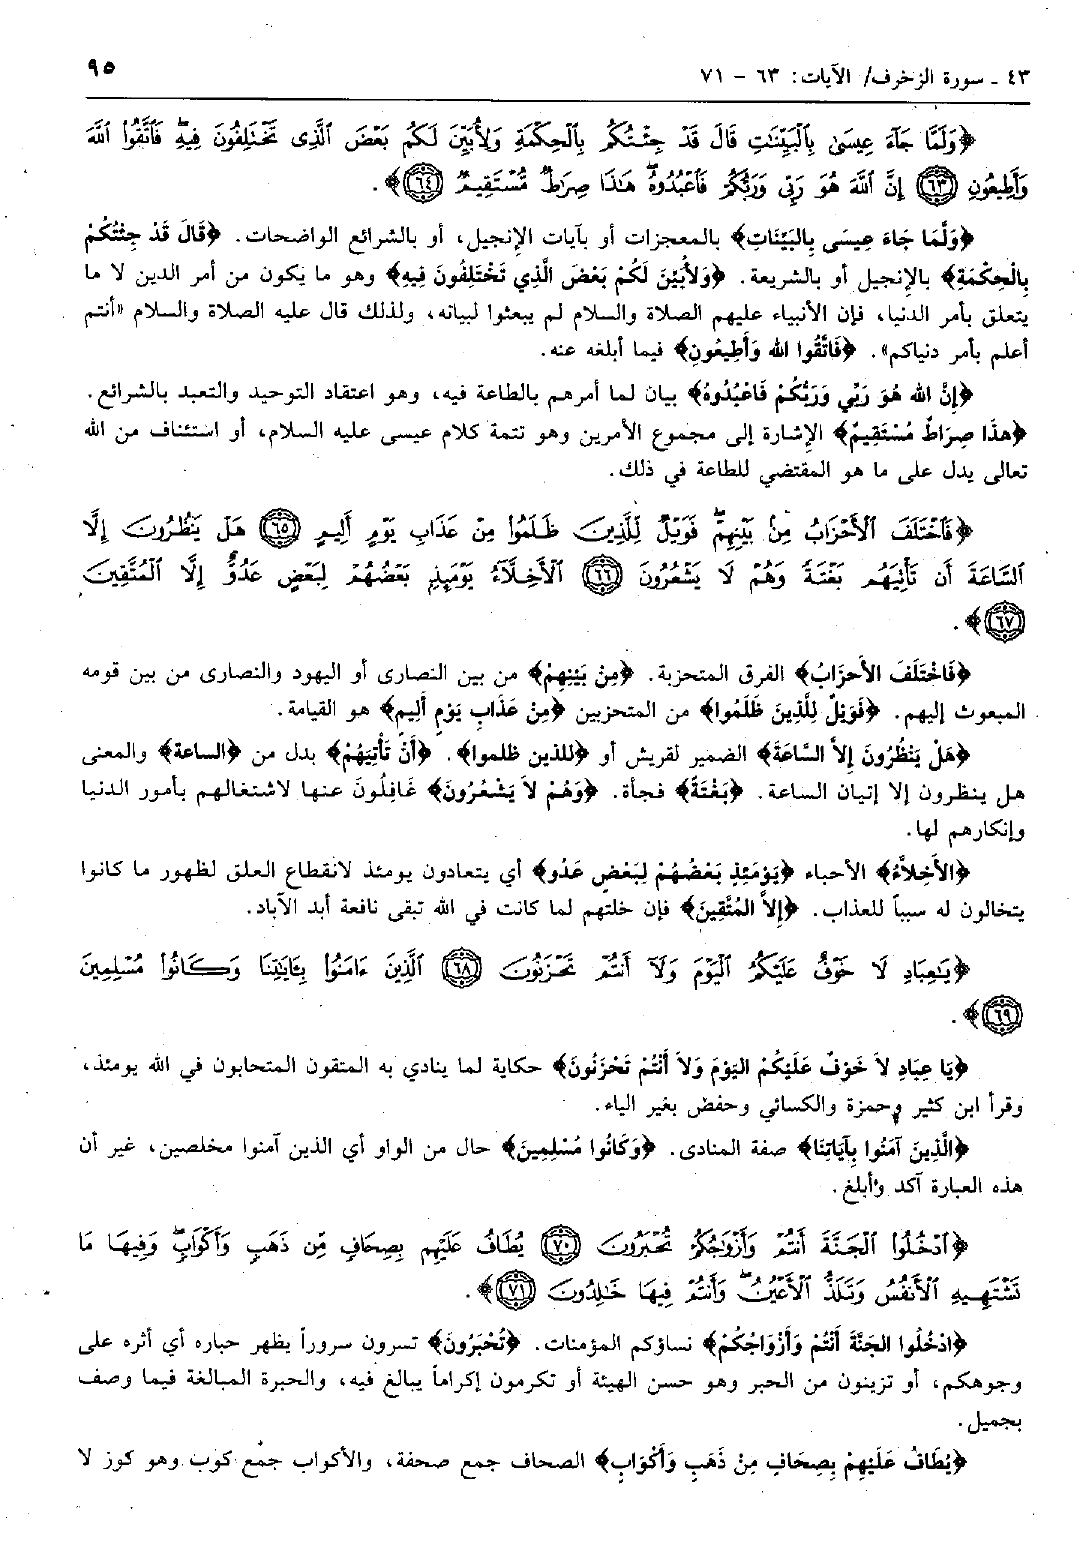 ٤٣ ـ سورة الزخرف/ الآيات: ٦٣ - ٧١
٩٥
﴿وَلَمَّا جَآءَ عِيسَىٰ بِٱلْبَيِّنَٰتِ قَالَ قَدْ جِئْتُكُم بِٱلْحِكْمَةِ وَلِأُبَيِّنَ لَكُم بَعْضَ ٱلَّذِى تَخْتَلِفُونَ فِيهِ ۖ فَٱتَّقُوا۟ ٱللَّهَ
وَأَطِيعُونِ ٦٣ إِنَّ ٱللَّهَ هُوَ رَبِّى وَرَبُّكُمْ فَٱعْبُدُوهُ ۚ هَٰذَا صِرَٰطٌ مُّسْتَقِيمٌ ٦٤﴾.
﴿وَلَمَّا جَاءَ عِيسَى بِالبَيِّنَاتِ﴾ بالمعجزات أو بآيات الإنجيل، أو بالشرائع الواضحات. ﴿قَالَ قَدْ جِئْتُكُمْ
بِالْحِكْمَةِ﴾ بالإِنجيل أو بالشريعة. ﴿وَلأُبَيِّنَ لَكُمْ بَعْضَ الَّذِي تَخْتَلِفُونَ فِيهِ﴾ وهو ما يكون من أمر الدين لا ما
يتعلق بأمر الدنيا، فإن الأنبياء عليهم الصلاة والسلام لم يبعثوا لبيانه، ولذلك قال عليه الصلاة والسلام «أنتم
أعلم بأمر دنياكم». ﴿فَاتَّقُوا الله وَأَطِيعُونِ﴾ فيما أبلغه عنه.
﴿إِنَّ الله هُوَ رَبِّي وَرَبُّكُمْ فَاعْبُدُوهُ﴾ بيان لما أمرهم بالطاعة فيه، وهو اعتقاد التوحيد والتعبد بالشرائع.
﴿هذَا صِرَاطٌ مُسْتَقِيمٌ﴾ الإشارة إلى مجموع الأمرين وهو تتمة كلام عيسى عليه السلام، أو استئناف من الله
تعالى يدل على ما هو المقتضي للطاعة في ذلك.
﴿فَٱخْتَلَفَ ٱلْأَحْزَابُ مِنۢ بَيْنِهِمْ ۖ فَوَيْلٌ لِّلَّذِينَ ظَلَمُوا۟ مِنْ عَذَابِ يَوْمٍ أَلِيمٍ ٦٥ هَلْ يَنظُرُونَ إِلَّا
ٱلسَّاعَةَ أَن تَأْتِيَهُم بَغْتَةً وَهُمْ لَا يَشْعُرُونَ ٦٦ ٱلْأَخِلَّآءُ يَوْمَئِذٍۭ بَعْضُهُمْ لِبَعْضٍ عَدُوٌّ إِلَّا ٱلْمُتَّقِينَ
٦٧﴾.
﴿فَاخْتَلَفَ الأَحزَابُ﴾ الفرق المتحزبة. ﴿مِنْ بَيْنِهِمْ﴾ من بين النصارى أو اليهود والنصارى من بين قومه
المبعوث إليهم. ﴿فَوَيْلٌ لِلَّذِينَ ظَلَمُوا﴾ من المتحزبين ﴿مِنْ عَذَابِ يَوْمٍ أَلِيمٍ﴾ هو القيامة.
﴿هَلْ يَنْظُرُونَ إِلاَّ السَّاعَةَ﴾ الضمير لقريش أو ﴿للذين ظلموا﴾. ﴿أَنْ تَأْتِيَهُمْ﴾ بدل من ﴿الساعة﴾ والمعنى
هل ينظرون إلا إتيان الساعة. ﴿بَغْتَةً﴾ فجأة. ﴿وَهُمْ لاَ يَشْعُرُونَ﴾ غَافِلُونَ عنها لاشتغالهم بأمور الدنيا
وإنكارهم لها.
﴿الأَخِلاَّءُ﴾ الأحباء ﴿يَوْمَئِذٍ بَعْضُهُمْ لِبَعْضٍ عَدُو﴾ أي يتعادون يومئذ لانقطاع العلق لظهور ما كانوا
يتخالون له سبباً للعذاب. ﴿إِلاَّ المُتَّقِينَ﴾ فإن خلتهم لما كانت في الله تبقى نافعة أبد الآباد.
﴿يَٰعِبَادِ لَا خَوْفٌ عَلَيْكُمُ ٱلْيَوْمَ وَلَآ أَنتُمْ تَحْزَنُونَ ٦٨ ٱلَّذِينَ ءَامَنُوا۟ بِـَٔايَٰتِنَا وَكَانُوا۟ مُسْلِمِينَ
٦٩﴾.
﴿يَا عِبَادِ لاَ خَوْفٌ عَلَيْكُمُ اليَوْمَ وَلاَ أَنْتُمْ تَحْزَنُونَ﴾ حكاية لما ينادي به المتقون المتحابون في الله يومئذ،
وقرأ ابن كثير وحمزة والكسائي وحفص بغير الياء.
﴿الَّذِينَ آمَنُوا بِآيَاتِنَا﴾ صفة المنادى. ﴿وَكَانُوا مُسْلِمِينَ﴾ حال من الواو أي الذين آمنوا مخلصين، غير أن
هذه العبارة آكد وأبلغ.
﴿ٱدْخُلُوا۟ ٱلْجَنَّةَ أَنتُمْ وَأَزْوَٰجُكُمْ تُحْبَرُونَ ٧٠ يُطَافُ عَلَيْهِم بِصِحَافٍ مِّن ذَهَبٍ وَأَكْوَابٍ ۖ وَفِيهَا مَا
تَشْتَهِيهِ ٱلْأَنفُسُ وَتَلَذُّ ٱلْأَعْيُنُ ۖ وَأَنتُمْ فِيهَا خَٰلِدُونَ ٧١﴾.
﴿ادْخُلُوا الجَنَّةَ أَنْتُمْ وَأَزْوَاجُكُمْ﴾ نساؤكم المؤمنات. ﴿تُحْبَرُونَ﴾ تسرون سروراً يظهر حباره أي أثره على
وجوهكم، أو تزينون من الحبر وهو حسن الهيئة أو تكرمون إكراماً يبالغ فيه، والحبرة المبالغة فيما وصف
بجميل.
﴿يُطَافُ عَلَيْهِمْ بِصِحَافٍ مِنْ ذَهَبٍ وَأَكْوَابٍ﴾ الصحاف جمع صحفة، والأكواب جمع كوب وهو كوز لا